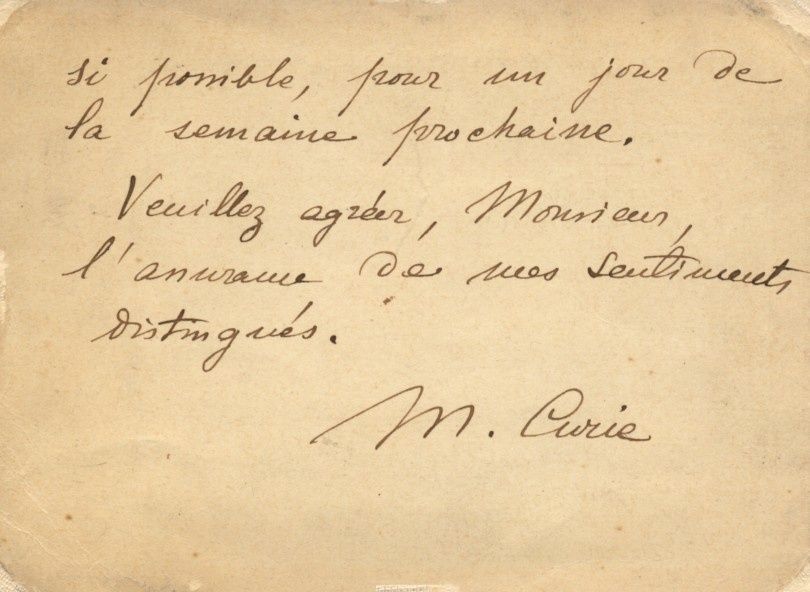 si possible, pour un jour de
la semaine prochaine.
Veuillez agréer, Monsieur,
l'assurance de mes sentiments
distingués.
M. Curie